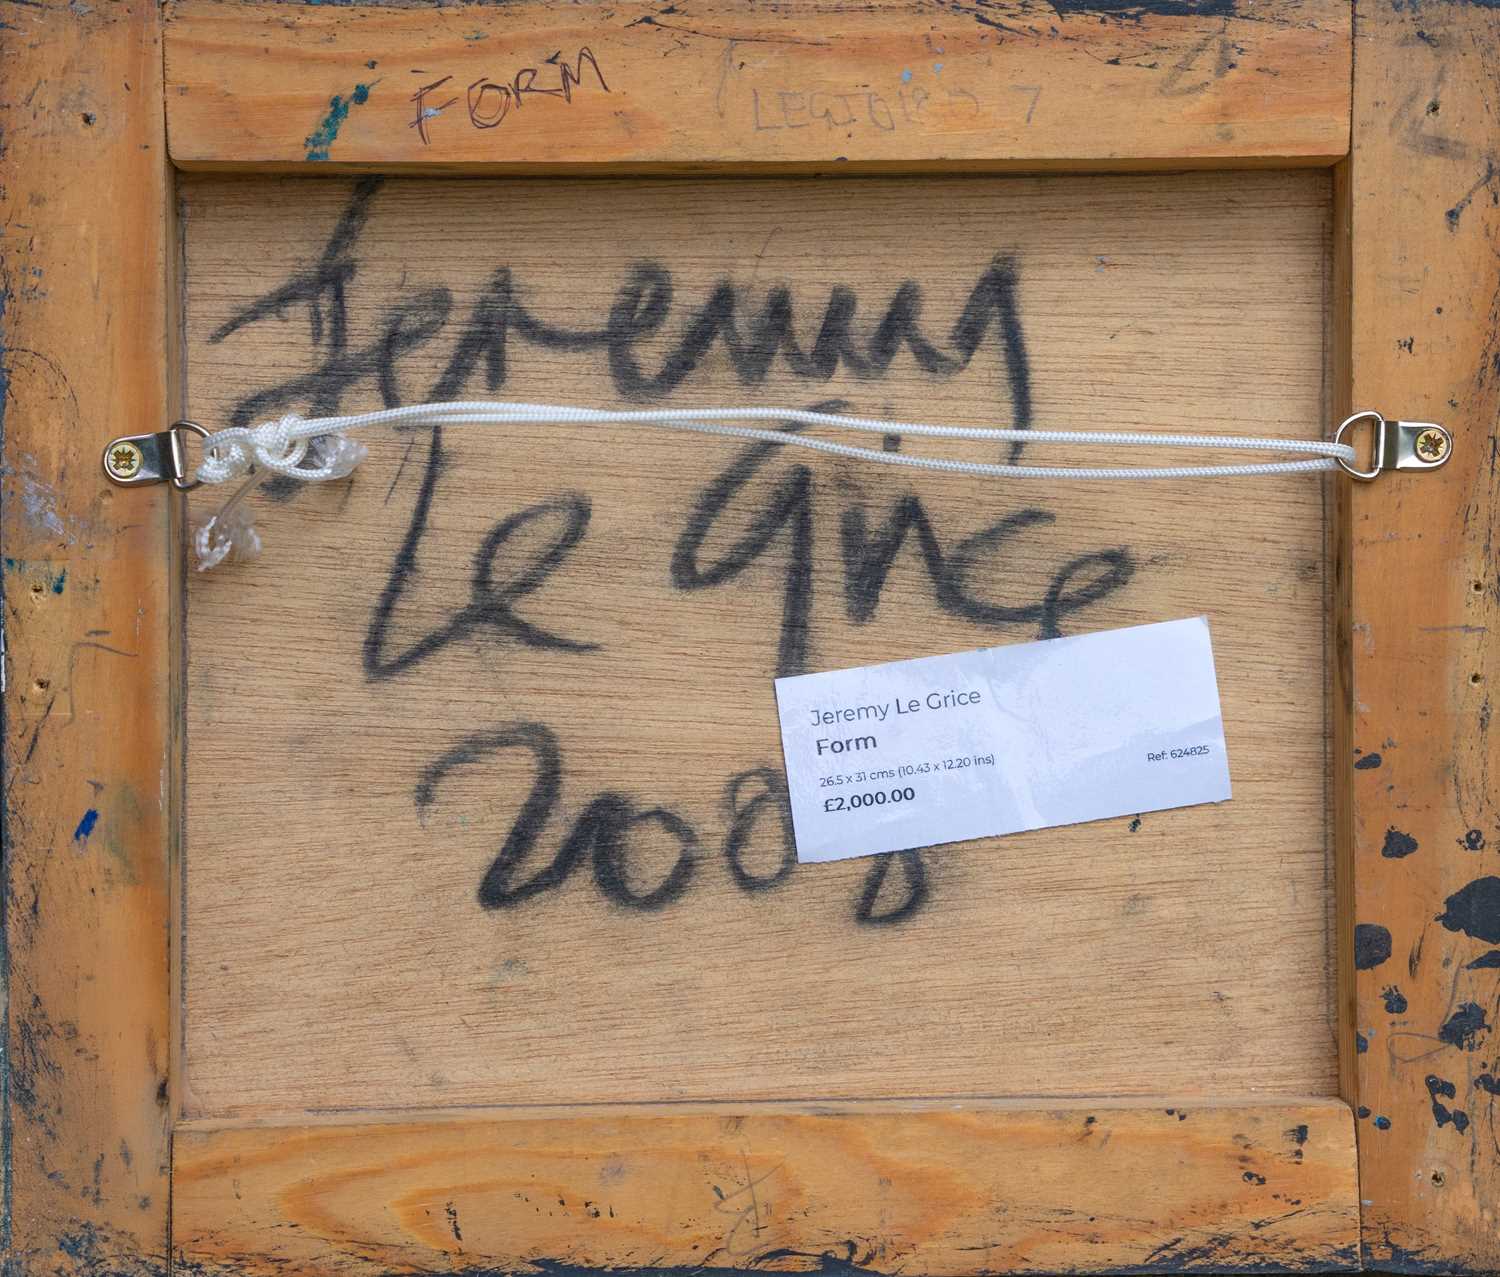 FORM
Jeremy
Le Grice
2008
Jeremy Le Grice
Form
26.5 x 31 cms (10.43 x 12.20 ins)
Ref: 624825
£2,000.00